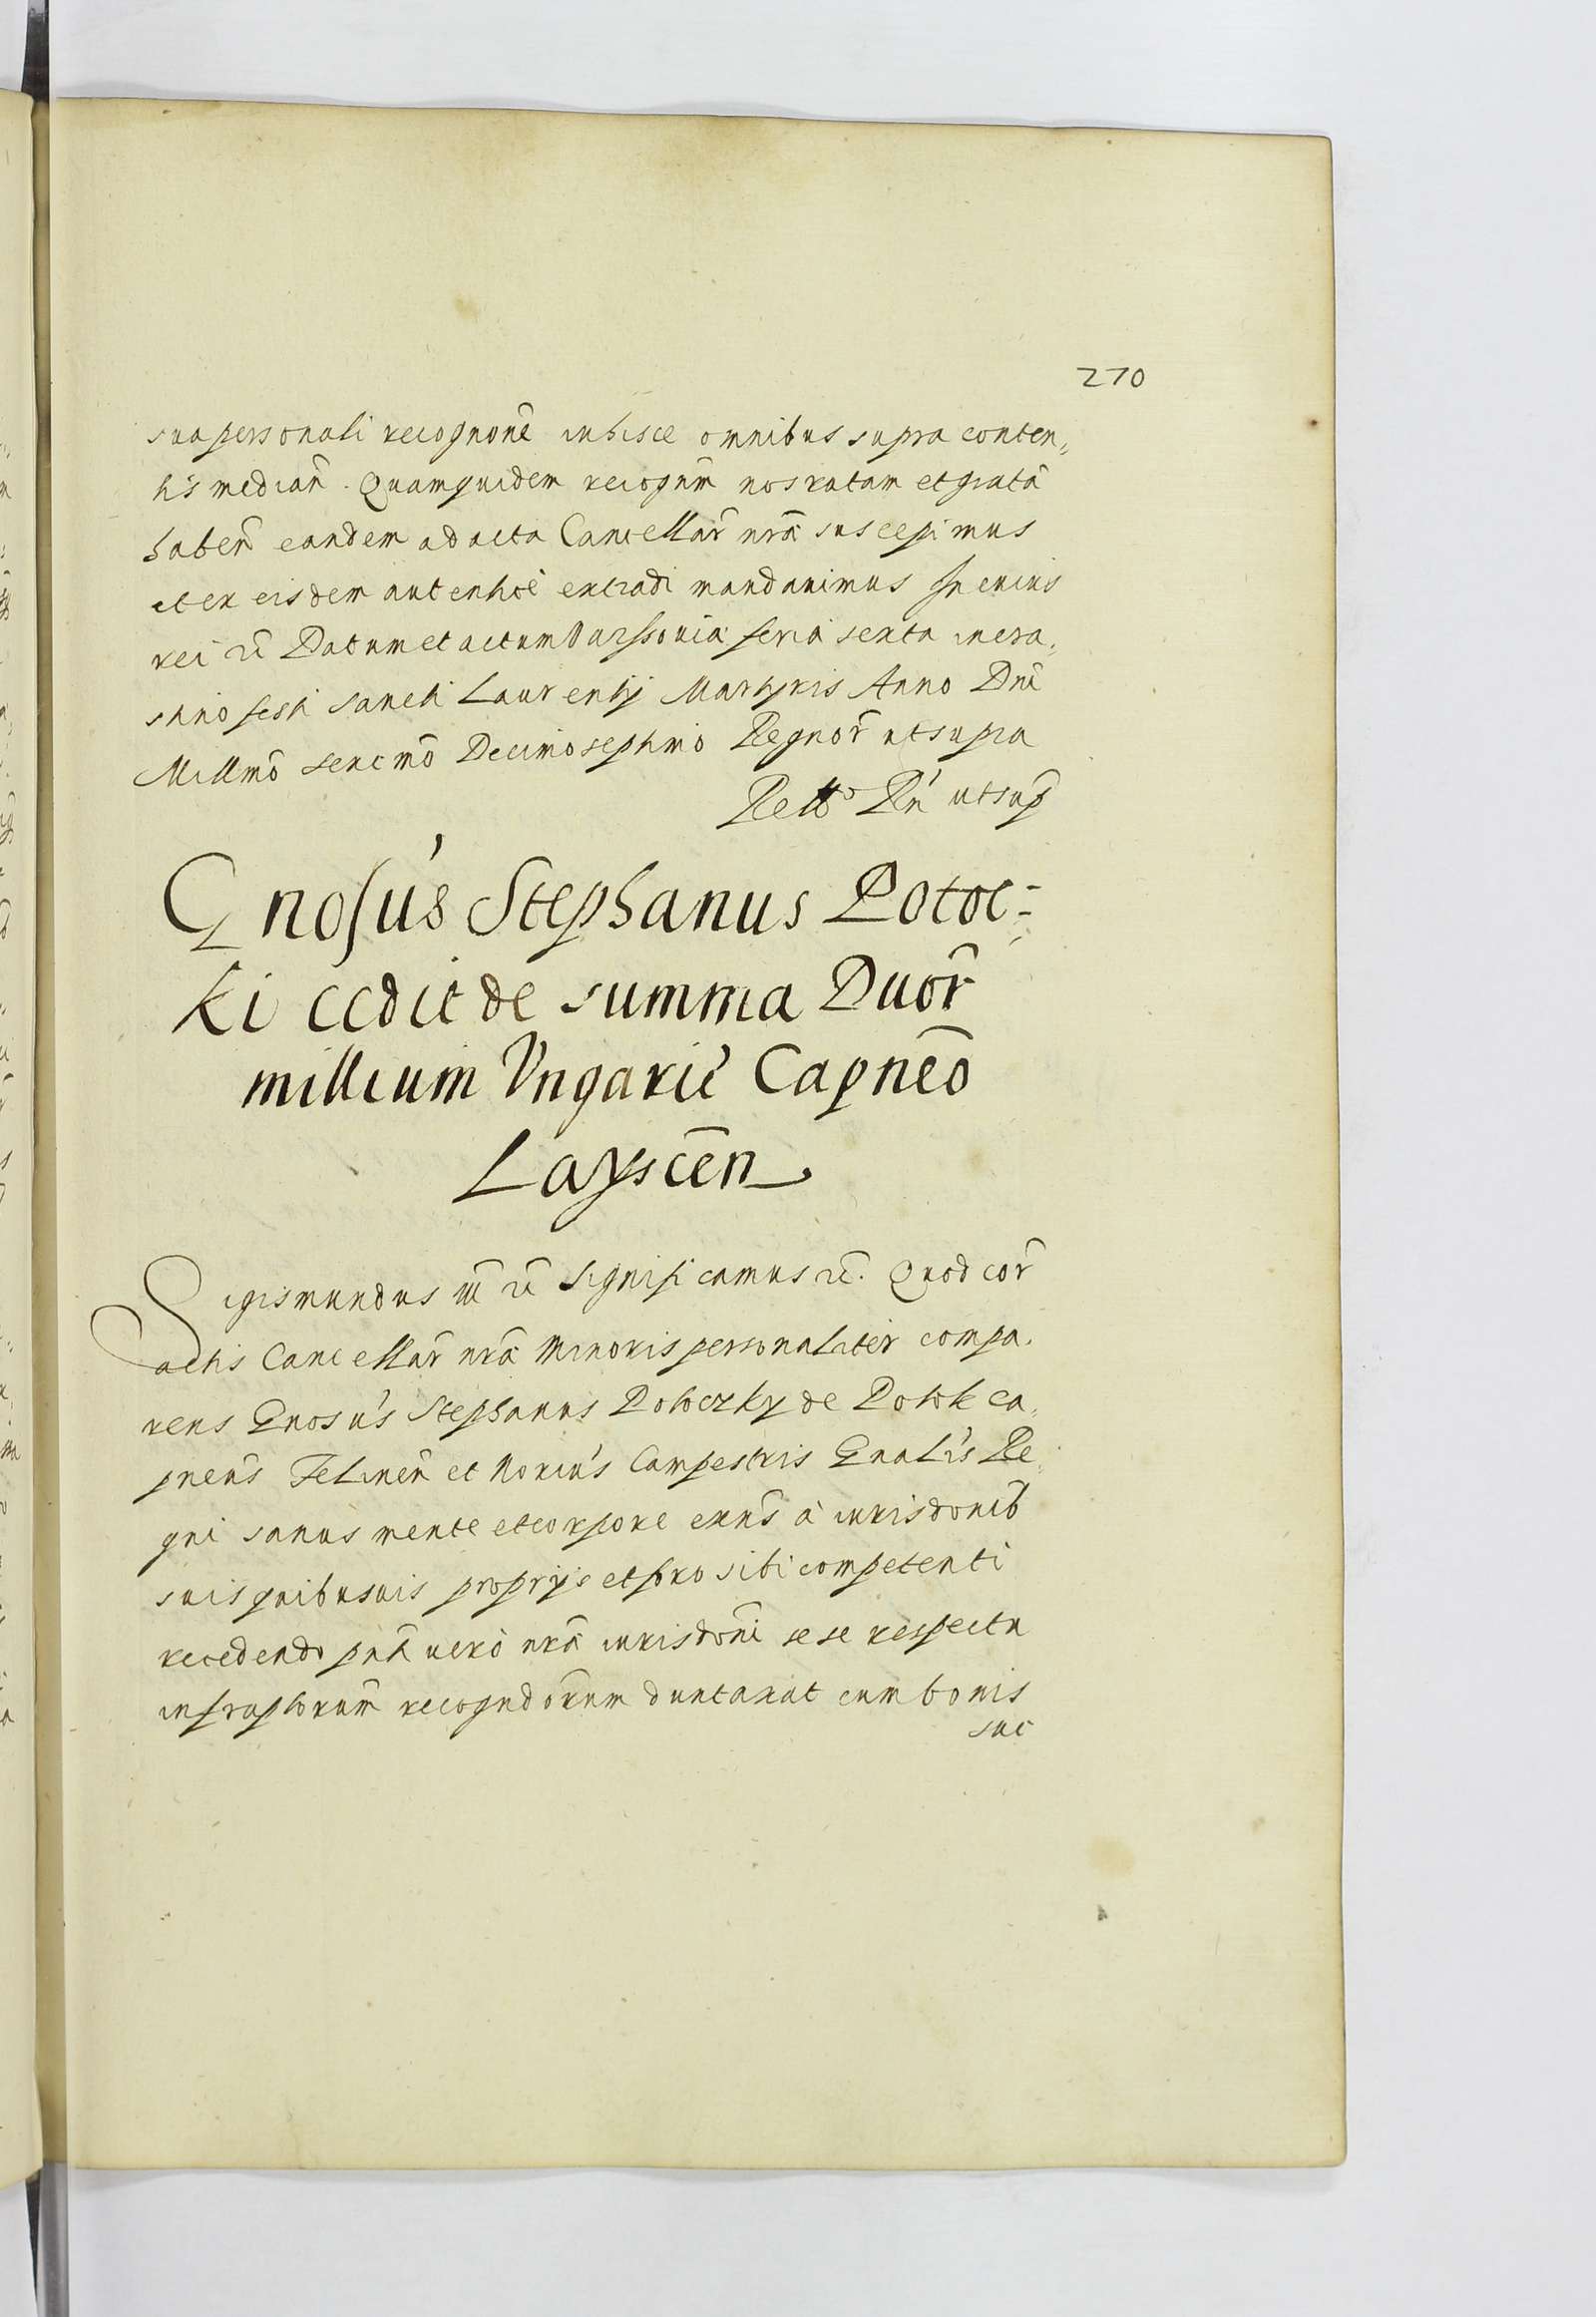 270
sua personali recognone in hisce omnibus supra conten„
tis median̄. Quam quidem recognm̄ nos ratam et gratā
haben̄ eandem ad acta Cancellar̄ nrā suscepimus
et ex eisdem autenticè extradi mandavimus In cuius
rei rē Datum et actum Varssovia feria sexta in cra„
stino festi Sancti Laurentij Martyris Anno Dnī
Millmō sexcmō Decimo septimo Regnor̄ ut supra
Gnosus Stephanus Potoc-
ki cedit de summa Duor̄
millium Ungaric̄ Capneō
Layscēn
Sigismundus III rē Significamus rē. Quod cor̄
actis Cancellar̄ nrā Minoris personaliter compa„
rens Gnosus Stephanus Potoczky de Potok ca„
pneus Felinen̄ et Notius Campestris Gnalis Re„
gni sanus mente et corpore exns à iurisdonib̄
suis quibusvis proprijs et foro sibi competenti
recedendo pnti vero nrā iurisdonī sese respectu
infraptorum̄ recogndōrum duntaxat cum bonis
suis